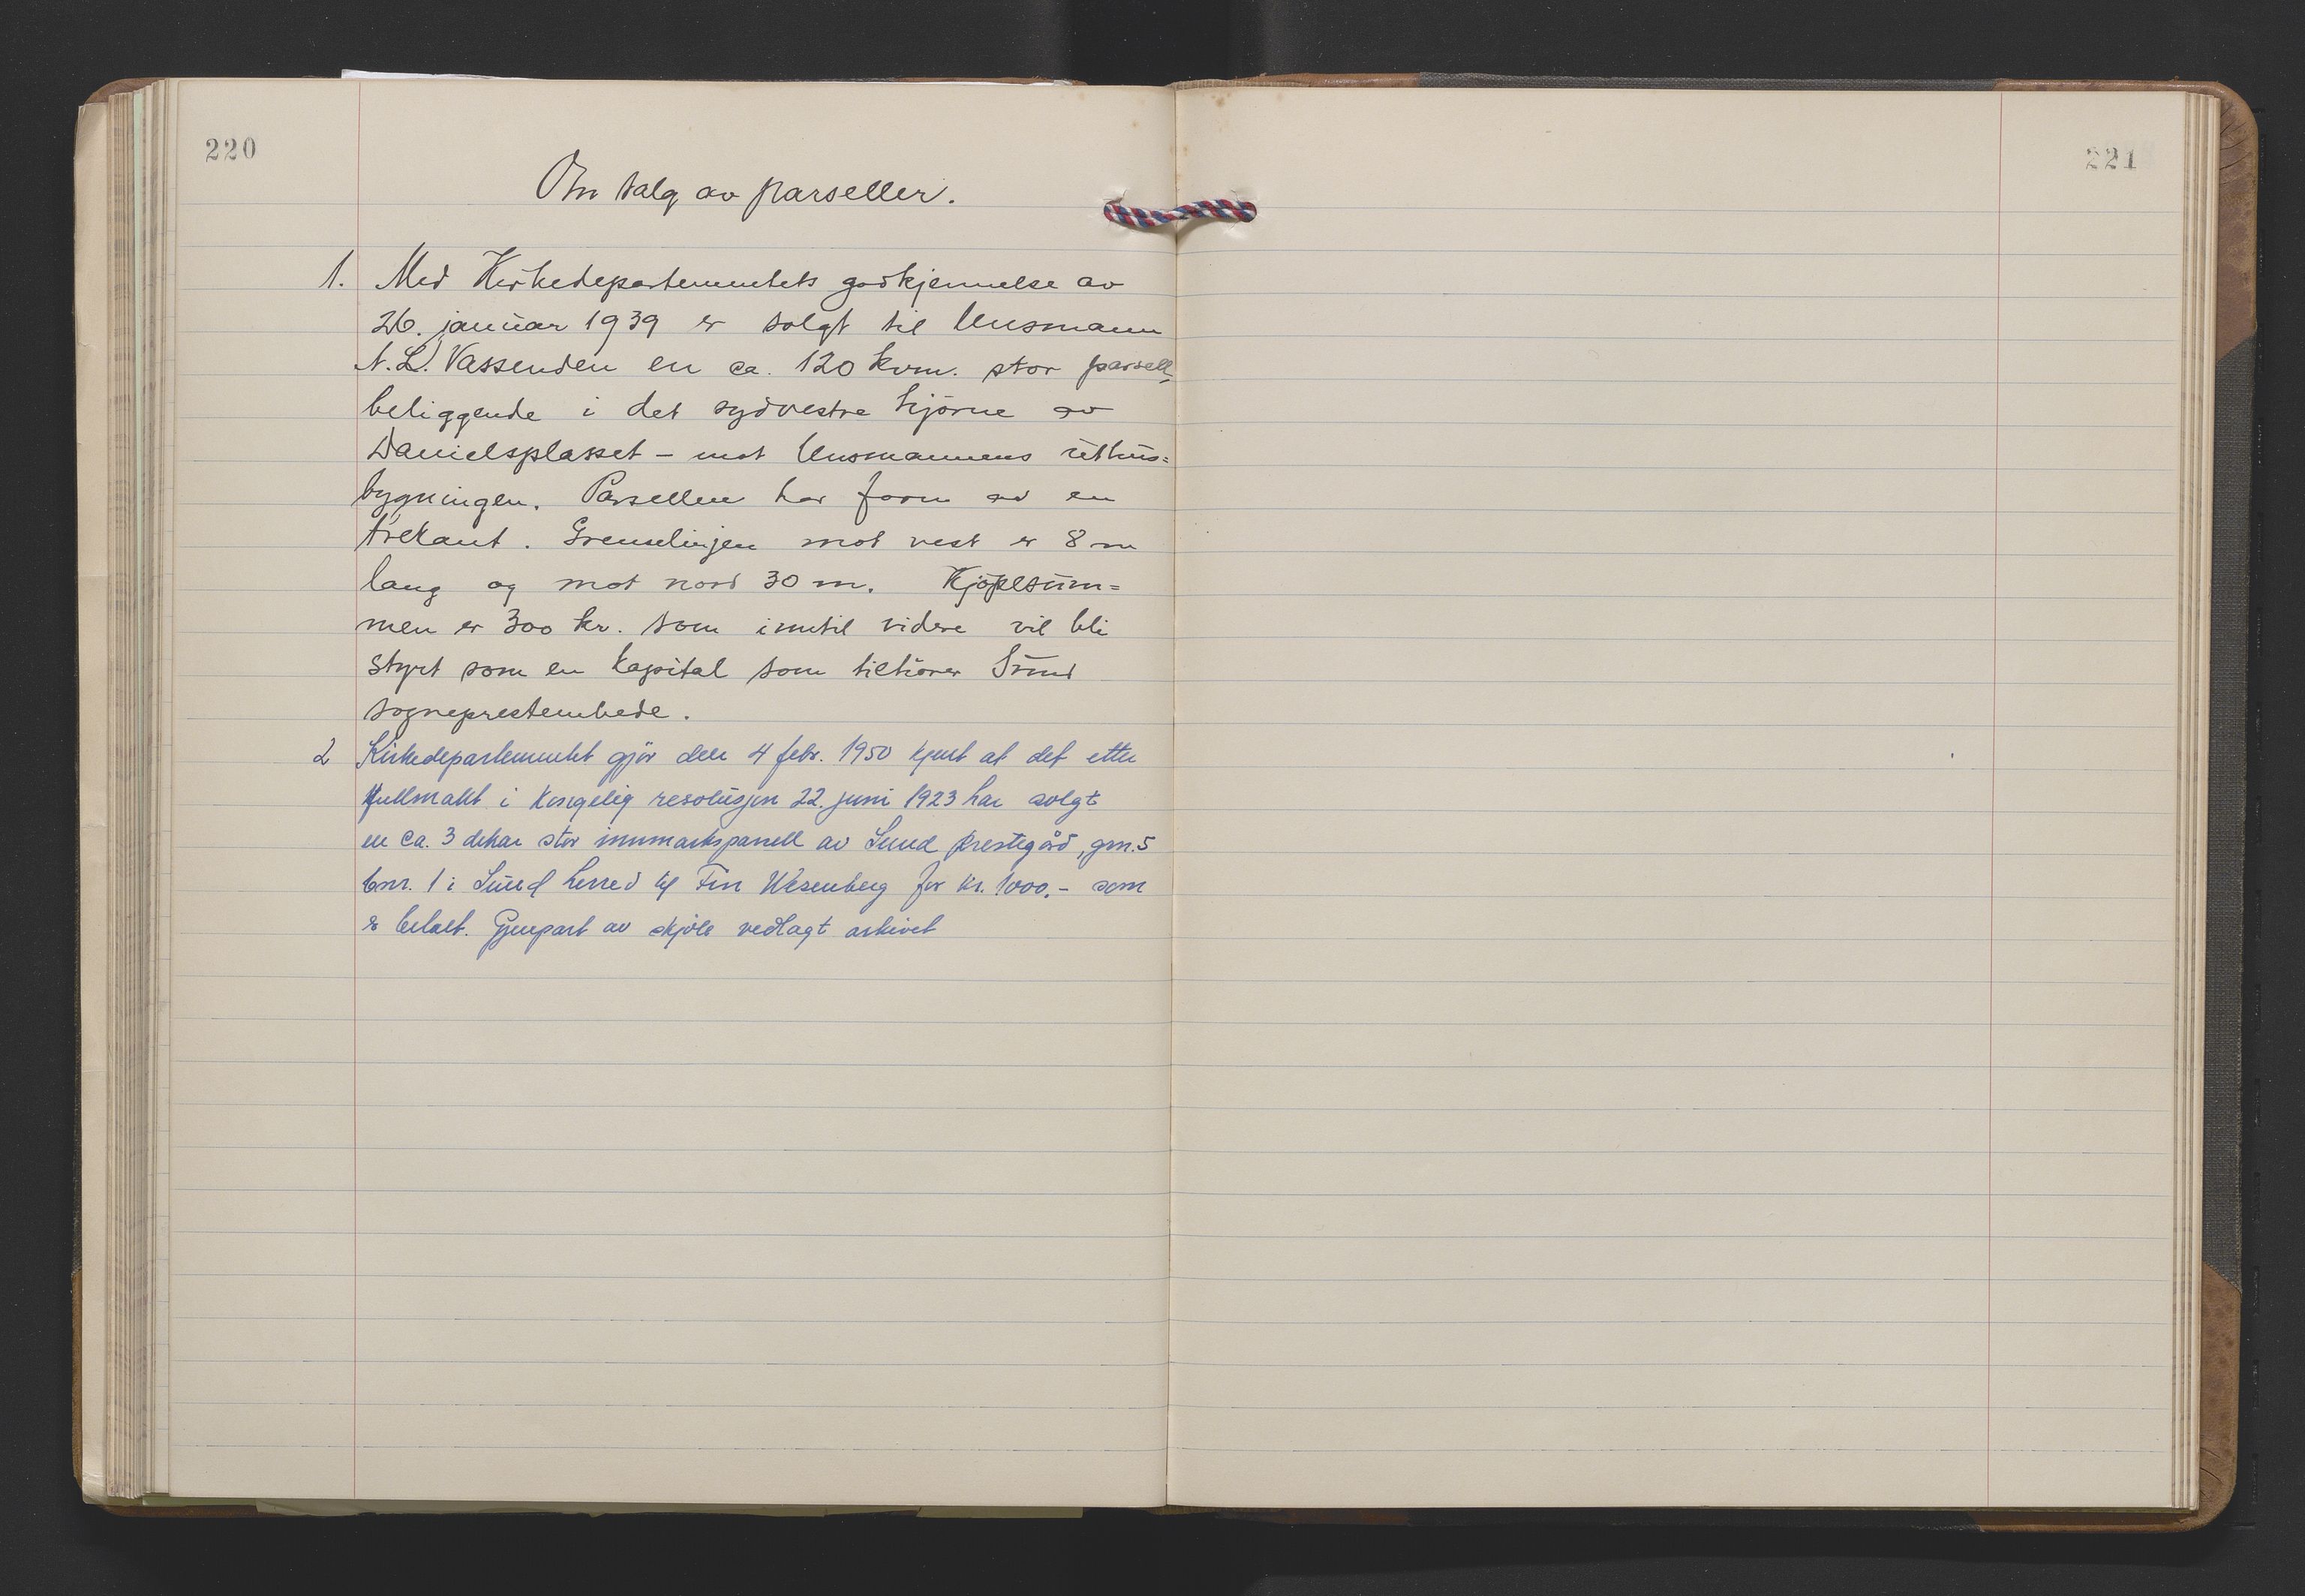 220
221
Om salg av parseller.
1. Med Kirkedepartementets godkjennelse av
26. januar 1939 er solgt til lensmann
N. L. Vassenden en ca. 120 kvm. stor parsell,
beliggende i det sydvestre hjørne av
Danielsplasset - mot lensmannens uthus=
bygningen. Parsellen har form av en
trekant. Grenselinjen mot vest er 8 m
lang og mot nord 30 m. Kjøpesum=
men er 300 kr. som inntil videre vil bli
styrt som en kapital som tilhører Sund
sogneprestembede.
2 Kirkedepartementet gjør den 4 febr. 1950 kjent at det etter
fullmakt i kongelig resolusjon 22. juni 1923 har solgt
en ca. 3 dekar stor innmarksparsell av Sund prestegård, gnr. 5
bnr. 1 i Sund herred til Finn Wesenberg for kr. 1000.- som
er betalt. Gjenpart av skjøte vedlagt arkivet